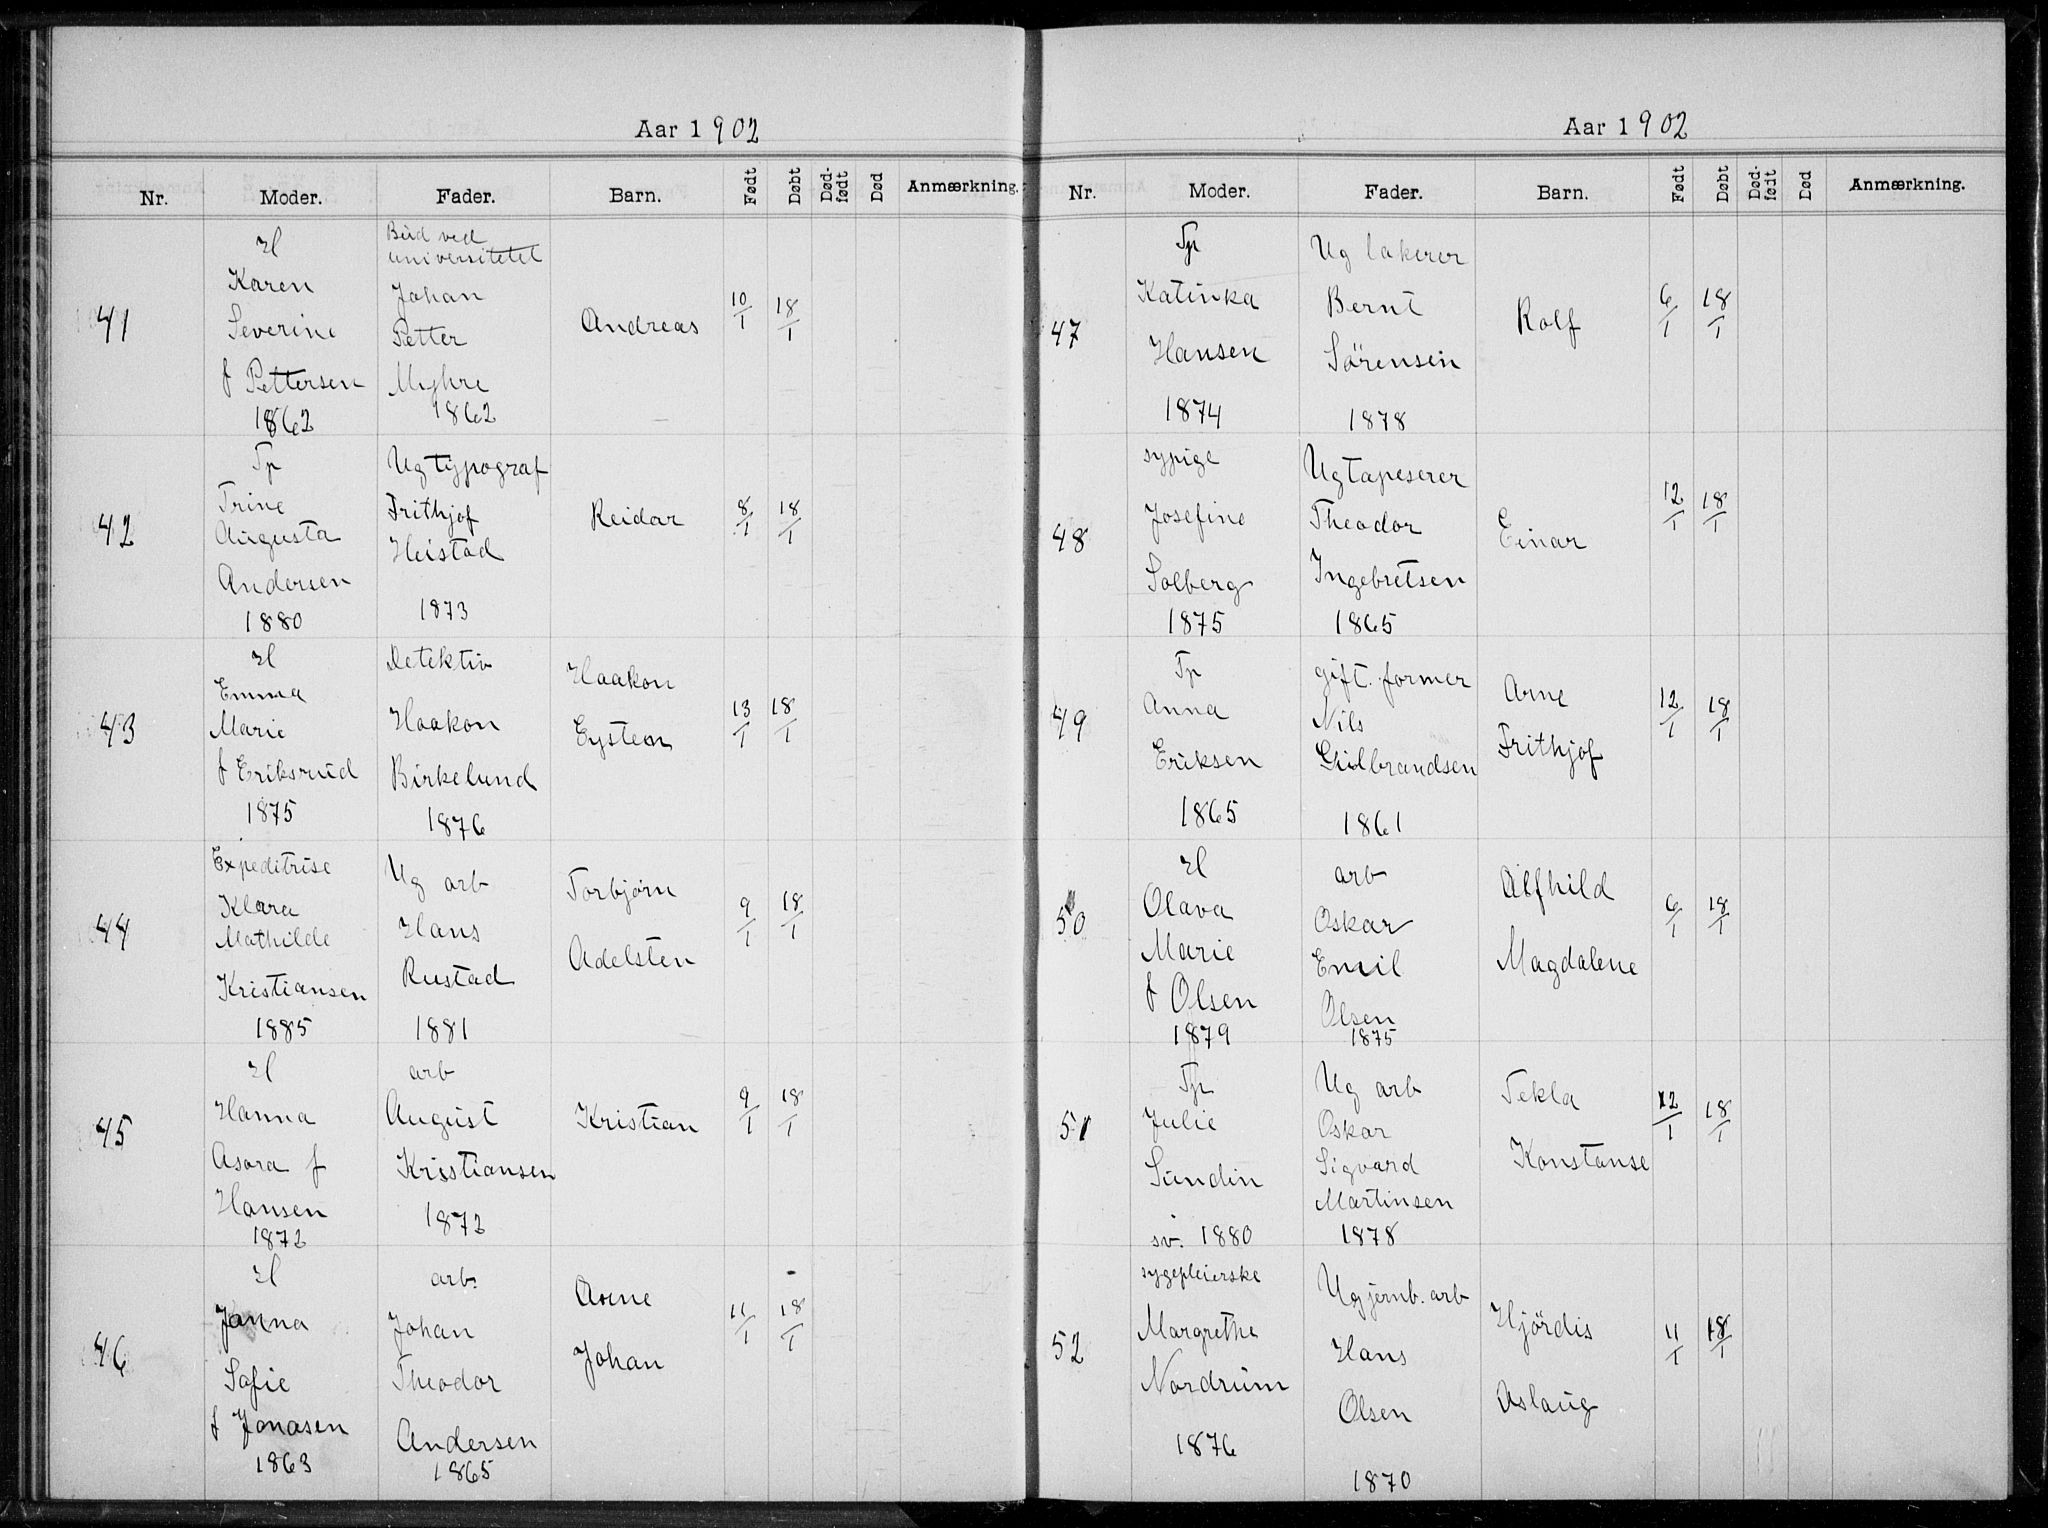 Aar 1902
Nr. Moder. Fader. Barn. Født Døbt Død-født Død Anmærkning.
41
H
Karen
Severine
f Pettersen
1862
Bud ved
universitetet
Johan
Petter
Myhre
1862
Andreas
10/1 18/1
42
Tp
Trine
Augusta
Andersen
1880
Ug typograf
Frithjof
Heistad
1873
Reidar
8/1 18/1
43
H
Emma
Marie
f Eriksrud
1875
Detektiv
Haakon
Birkelund
1876
Haakon
Eystein
13/1 18/1
44
Expeditrise
Klara
Mathilde
Kristiansen
1885
Ug arb
Hans
Rustad
1881
Torbjørn
Adelsten
9/1 18/1
45
H
Hanna
Asora f
Hansen
1872
arb
August
Kristiansen
1872
Kristian
9/1 18/1
46
H
Janna
Sofie
f Jonasen
1863
arb.
Johan
Theodor
Andersen
1865
Arne
Johan
11/1 18/1
Aar 1902
Nr. Moder. Fader. Barn. Født Døbt Død-født Død Anmærkning.
47
Tp
Katinka
Hansen
1874
Ug lakerer
Bernt
Sörensen
1878
Rolf
6/1 18/1
48
sypige
Josefine
Solberg
1875
Ug tapeserer
Theodor
Ingebretsen
1865
Einar
12/1 18/1
49
Tp
Anna
Eriksen
1865
gift. former
Nils
Gulbrandsen
1861
Arne
Frithjof
12/1 18/1
50
H
Olava
Marie
f Olsen
1879
arb
Oskar
Emil
Olsen
1875
Alfhild
Magdalene
6/1 18/1
51
Tp
Julie
Sundin
sv. 1880
Ug arb
Oskar
Sigvard
Martinsen
1878
Tekla
Konstanse
12/1 18/1
52
sygepleierske
Margrethe
Nordrum
1876
Ug jernb. arb
Hans
Olsen
1870
Hjördis
Aslaug
11/1 18/1